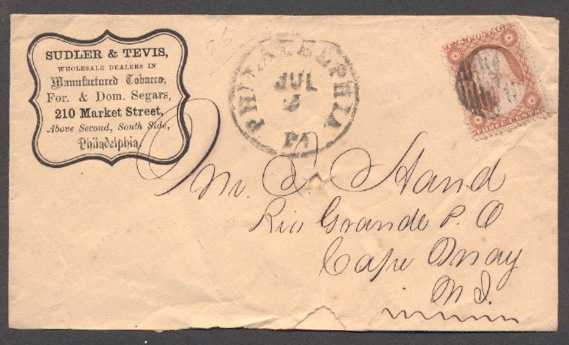 SUDLER & TEVIS,
WHOLESALE DEALERS IN
Manufactured Tobacco,
For. & Dom. Segars,
210 Market Street,
Above Second, South Side,
Philadelphia.
PHILADELPHIA
JUL
PA
THREE CENTS
Mr. S Hand
Rio Grande P. O
Cape May
N. J.